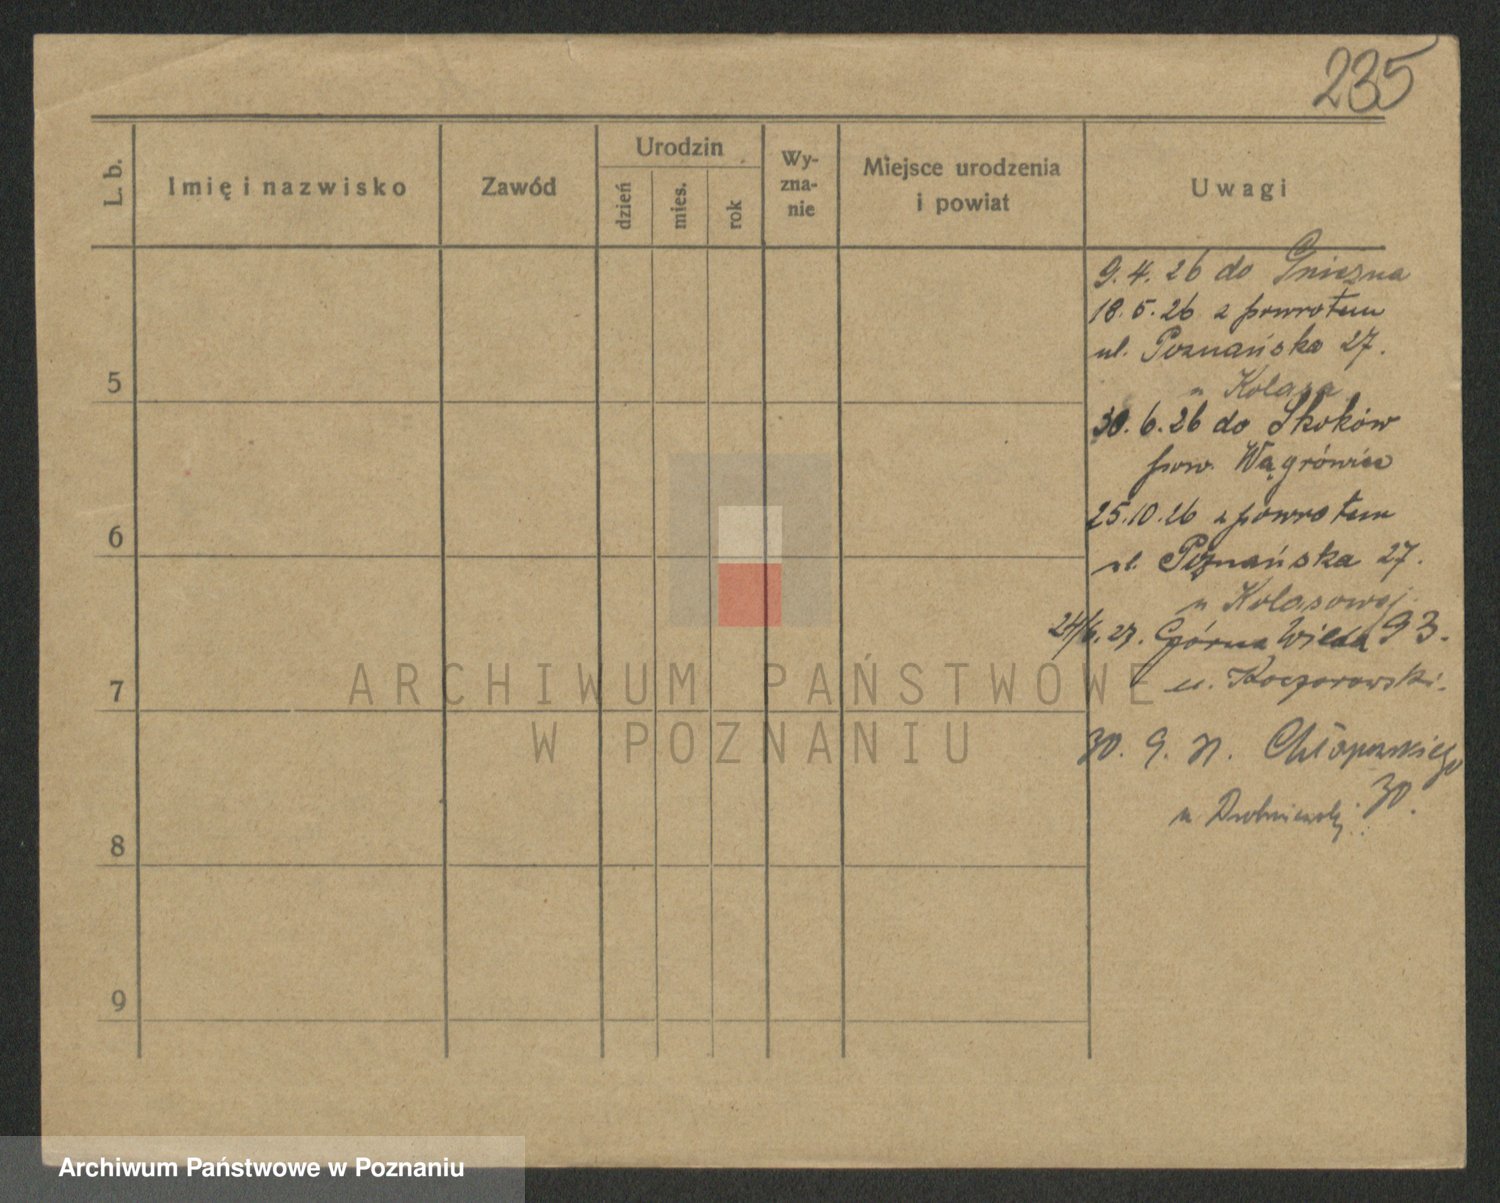 235
L. b.
Imię i nazwisko
Zawód
Urodzin
dzień
mies.
rok
Wy-
zna-
nie
Miejsce urodzenia
i powiat
Uwagi
9. 4. 26 do Gniezna
18. 5. 26 z powrotem
ul. Poznańska 27.
5
u Kolasa
30. 6. 26 do Skoków
pow. Wągrówiec
25.10.26 z powrotem
6
ul. Poznańska 27.
u Kolasowej
24/6. 27. Górna Wilda 93.
7
u. Koczorowski.
30. 9. Chłapowskiego
30.
u
8
9
ARCHIWUM PAŃSTWOWE
W POZNANIU
Archiwum Państwowe w Poznaniu